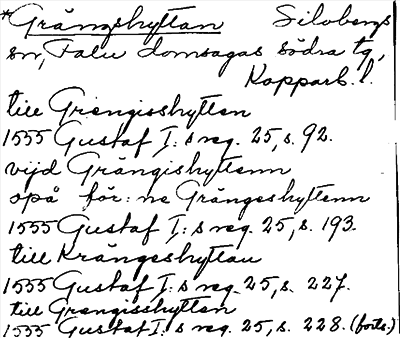 *Grängshyttan Silvbergs
sn, Falu domsagas södra tg,
Kopparb. l.
till Grengisshytten
1555 Gustaf I: s reg. 25, s. 92.
vijd Grängishyttenn
opå för: ne Grängeshyttenn
1555 Gustaf I: s reg. 25, s. 193.
till Krängeshyttan
1555 Gustaf I: s reg. 25, s. 227.
till Grengisshytten
1555 Gustaf I: s reg. 25, s. 228. (forts.)